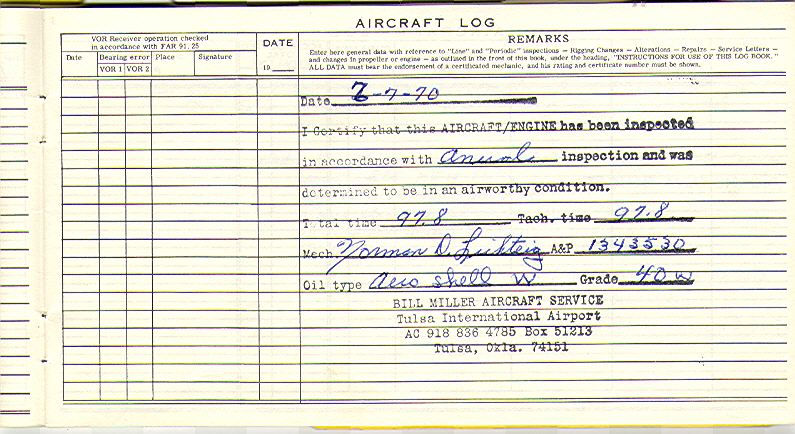 AIRCRAFT LOG
VOR Receiver operation checked
in accordance with FAR 91.25
Date
Bearing error
VOR 1 VOR 2
Place
Signature
DATE
19
REMARKS
Enter here general data with reference to "Line" and "Periodic" inspections — Rigging Changes — Alterations — Repairs — Service Letters —
and changes in propeller or engine — as outlined in the front of this book, under the heading, "INSTRUCTIONS FOR USE OF THIS LOG BOOK."
ALL DATA must bear the endorsement of a certificated mechanic, and his rating and certificate number must be shown.
Date 7-7-70
I Certify that this AIRCRAFT/ENGINE has been inspected
in accordance with Annual inspection and was
determined to be in an airworthy condition.
Total time 97.8 Tach. time 97.8
Mech. Norman D. A&P 1343530
Oil type Aero Shell W Grade 40 W
BILL MILLER AIRCRAFT SERVICE
Tulsa International Airport
AC 918 836 4785 Box 51213
Tulsa, Okla. 74151